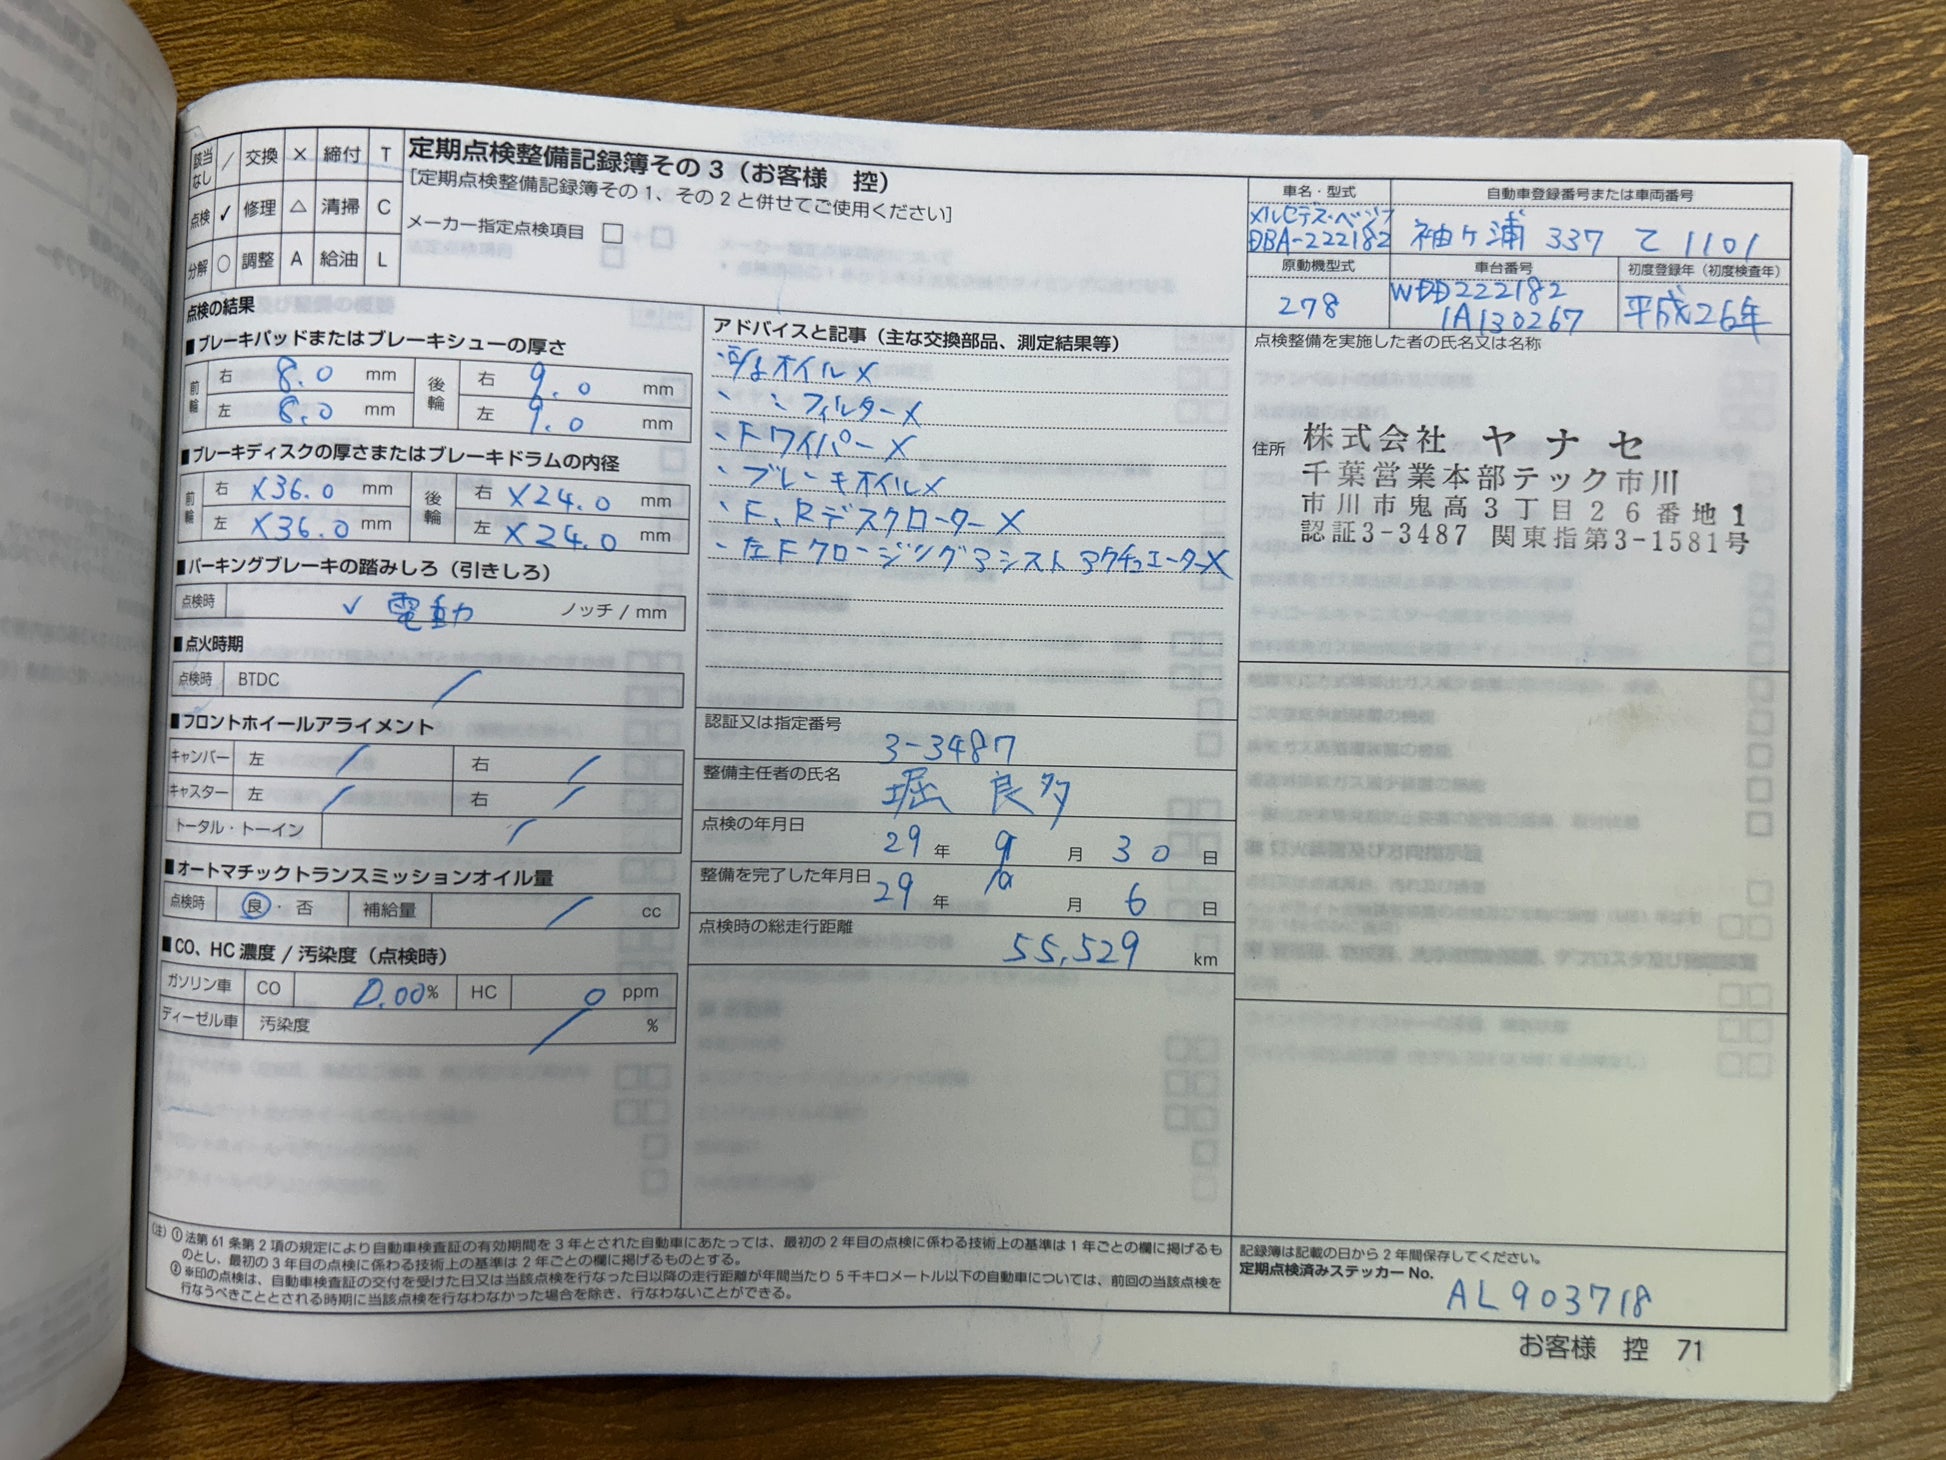 該当なし / 交換 × 締付 T
点検 ✓ 修理 △ 清掃 C
分解 ○ 調整 A 給油 L
定期点検整備記録簿その3（お客様 控）
［定期点検整備記録簿その1、その2と併せてご使用ください］
メーカー指定点検項目 □
車名・型式 自動車登録番号または車両番号
メルセデス・ベンツ
DBA-222182 袖ヶ浦 337 て 1101
原動機型式 車台番号 初度登録年（初度検査年）
278 WDD222182
1A130267 平成26年
点検の結果
■ブレーキパッドまたはブレーキシューの厚さ
前輪 右 8.0 mm 後輪 右 9.0 mm
左 8.0 mm 左 9.0 mm
■ブレーキディスクの厚さまたはブレーキドラムの内径
前輪 右 X36.0 mm 後輪 右 X24.0 mm
左 X36.0 mm 左 X24.0 mm
■パーキングブレーキの踏みしろ（引きしろ）
点検時 ✓ 電動 ノッチ / mm
■点火時期
点検時 BTDC /
■フロントホイールアライメント
キャンバー 左 / 右 /
キャスター 左 / 右 /
トータル・トーイン /
■オートマチックトランスミッションオイル量
点検時 良・否 補給量 / cc
■CO、HC濃度 / 汚染度（点検時）
ガソリン車 CO 0.00% HC 0 ppm
ディーゼル車 汚染度 / %
アドバイスと記事（主な交換部品、測定結果等）
オイル×
・〃 フィルター×
・Fワイパー×
・ブレーキオイル×
・F、Rデスクローター×
・左Fクロージングアシストアクチュエーター×
認証又は指定番号
3-3487
整備主任者の氏名
堀 良多
点検の年月日
29年 9月 30日
整備を完了した年月日
29年 10月 6日
点検時の総走行距離
55,529 km
点検整備を実施した者の氏名又は名称
住所 株式会社 ヤナセ
千葉営業本部テック市川
市川市鬼高3丁目26番地1
認証3-3487 関東指第3-1581号
（注）①法第61条第2項の規定により自動車検査証の有効期間を3年とされた自動車にあたっては、最初の2年目の点検に係わる技術上の基準は1年ごとの欄に掲げるも
のとし、最初の3年目の点検に係わる技術上の基準は2年ごとの欄に掲げるものとする。
②※印の点検は、自動車検査証の交付を受けた日又は当該点検を行なった日以降の走行距離が年間当たり5千キロメートル以下の自動車については、前回の当該点検を
行なうべきこととされる時期に当該点検を行なわなかった場合を除き、行なわないことができる。
記録簿は記載の日から2年間保存してください。
定期点検済みステッカーNo.
AL903718
お客様 控 71